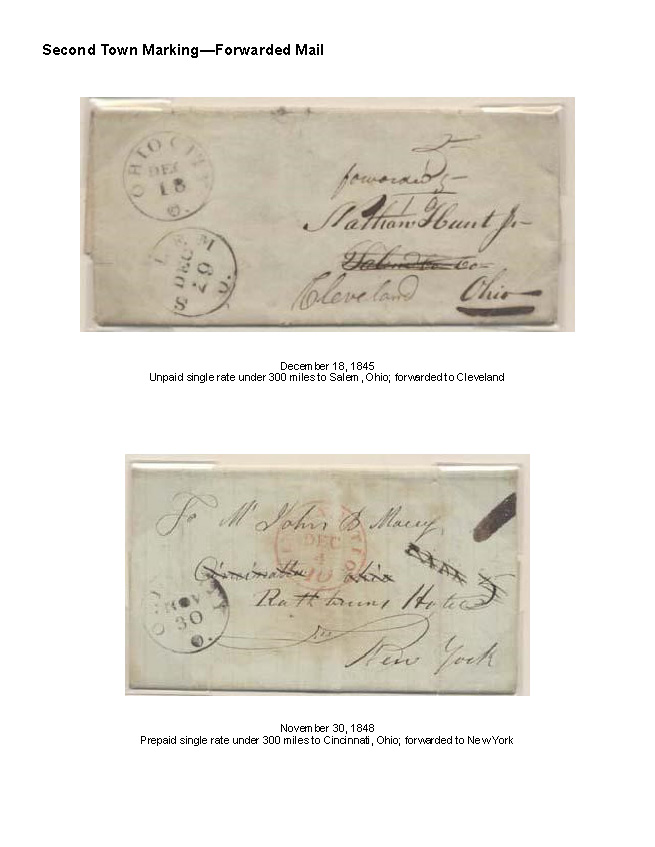 Second Town Marking—Forwarded Mail
OHIO CITY
DEC
18
O.
forwarded
5
Nathan Hunt Jr
Salem
Co
Cleveland Ohio
SALEM
DEC
29
O.
December 18, 1845
Unpaid single rate under 300 miles to Salem, Ohio; forwarded to Cleveland
To Mr John B Macy,
DEC
4
10
Cincinnatti Ohio
PAID
5
Rathbuns Hotel
New York
OHIO CITY
NOV
30
O.
November 30, 1848
Prepaid single rate under 300 miles to Cincinnati, Ohio; forwarded to New York